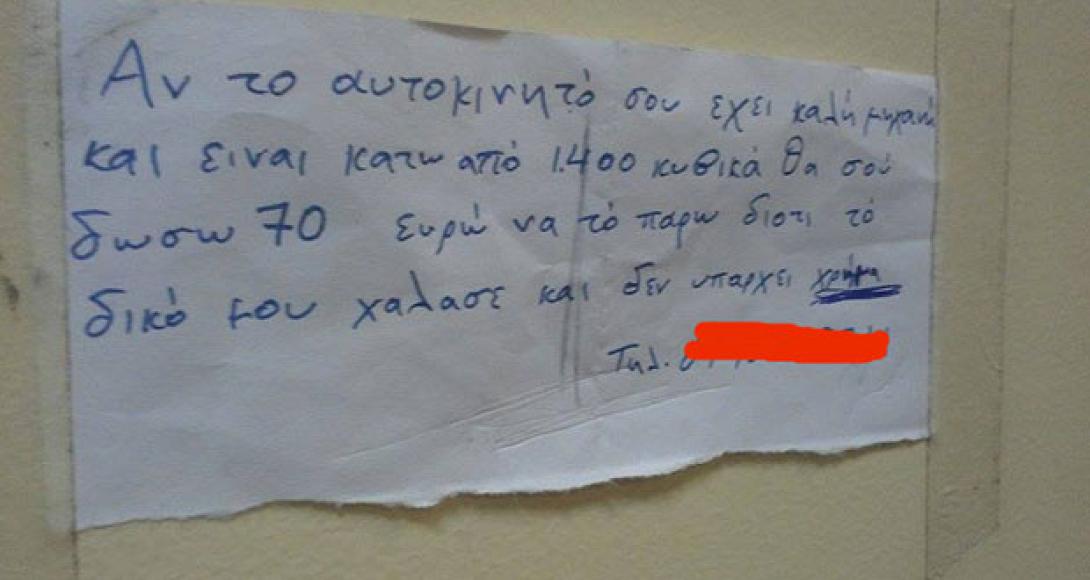 Αν το αυτοκινητό σου εχει καλή μηχανή
και ειναι κατω από 1.400 κυβικά θα σού
δωσω 70 ευρώ να τό παρω διοτι τό
δικό μου χαλασε και δεν υπαρχει χρήμα
Τηλ.